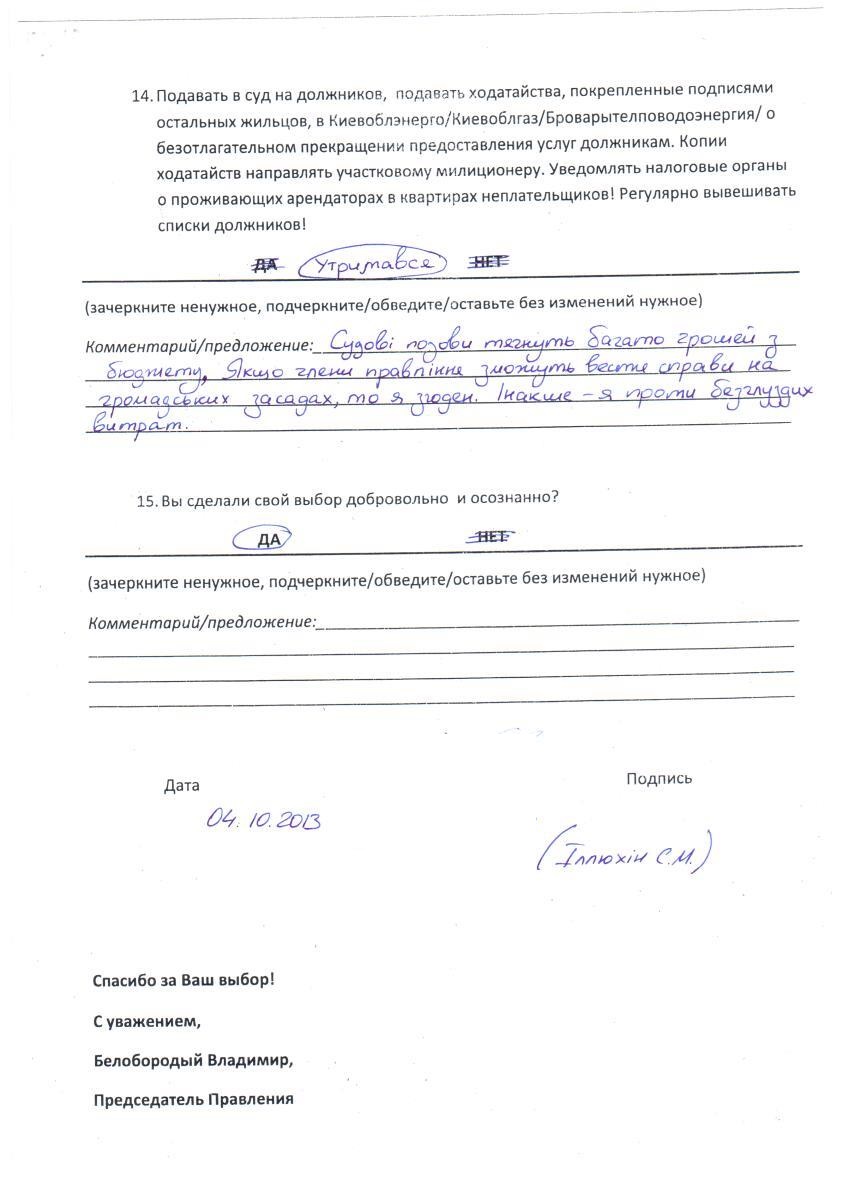 14. Подавать в суд на должников, подавать ходатайства, покрепленные подписями
остальных жильцов, в Киевоблэнерго/Киевоблгаз/Броварытелповодоэнергия/ о
безотлагательном прекращении предоставления услуг должникам. Копии
ходатайств направлять участковому милиционеру. Уведомлять налоговые органы
о проживающих арендаторах в квартирах неплательщиков! Регулярно вывешивать
списки должников!
ДА Утримався НЕТ
(зачеркните ненужное, подчеркните/обведите/оставьте без изменений нужное)
Комментарий/предложение: Судові позови тягнуть багато грошей з
бюджету, Якщо члени правління зможуть вести справи на
громадських засадах, то я згоден. Інакше – я проти безглуздих
витрат.
15. Вы сделали свой выбор добровольно и осознанно?
ДА НЕТ
(зачеркните ненужное, подчеркните/обведите/оставьте без изменений нужное)
Комментарий/предложение:
Дата Подпись
04.10.2013
(Іллюхін С.М.)
Спасибо за Ваш выбор!
С уважением,
Белобородый Владимир,
Председатель Правления